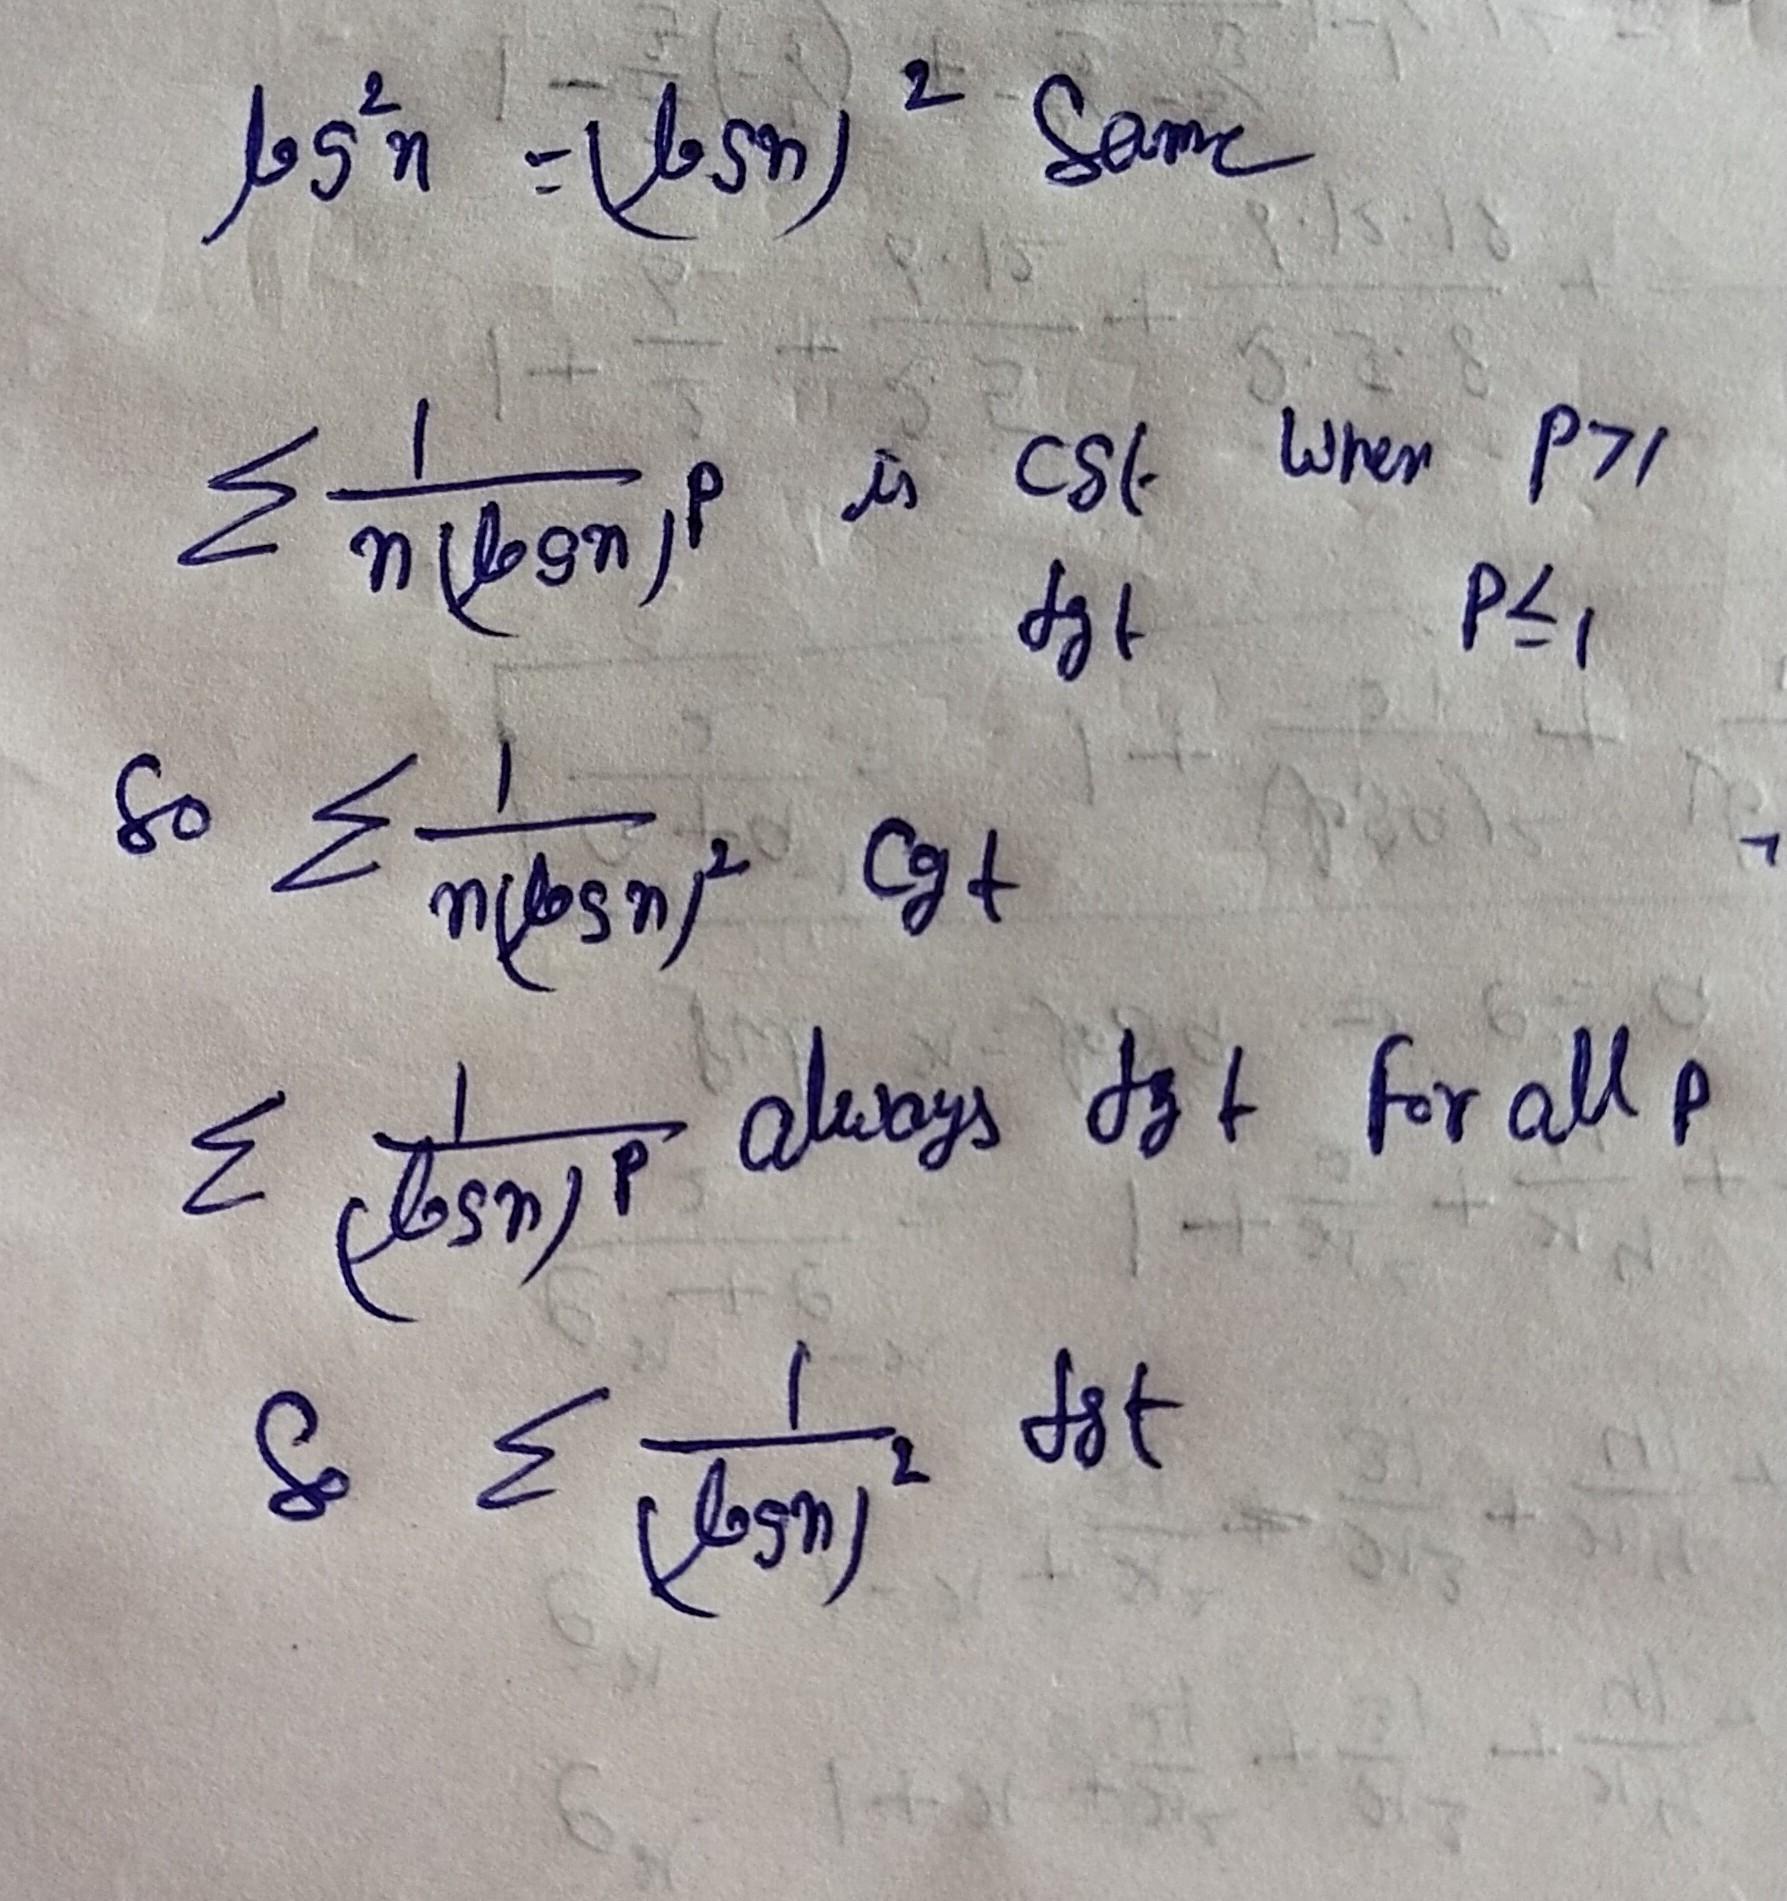 log²n = (logn)² Same
∑ 1/n(logn)^p is cgt when p>1
dgt p≤1
So ∑ 1/n(logn)² cgt
∑ 1/(logn)^p always dgt for all p
So ∑ 1/(logn)² dgt